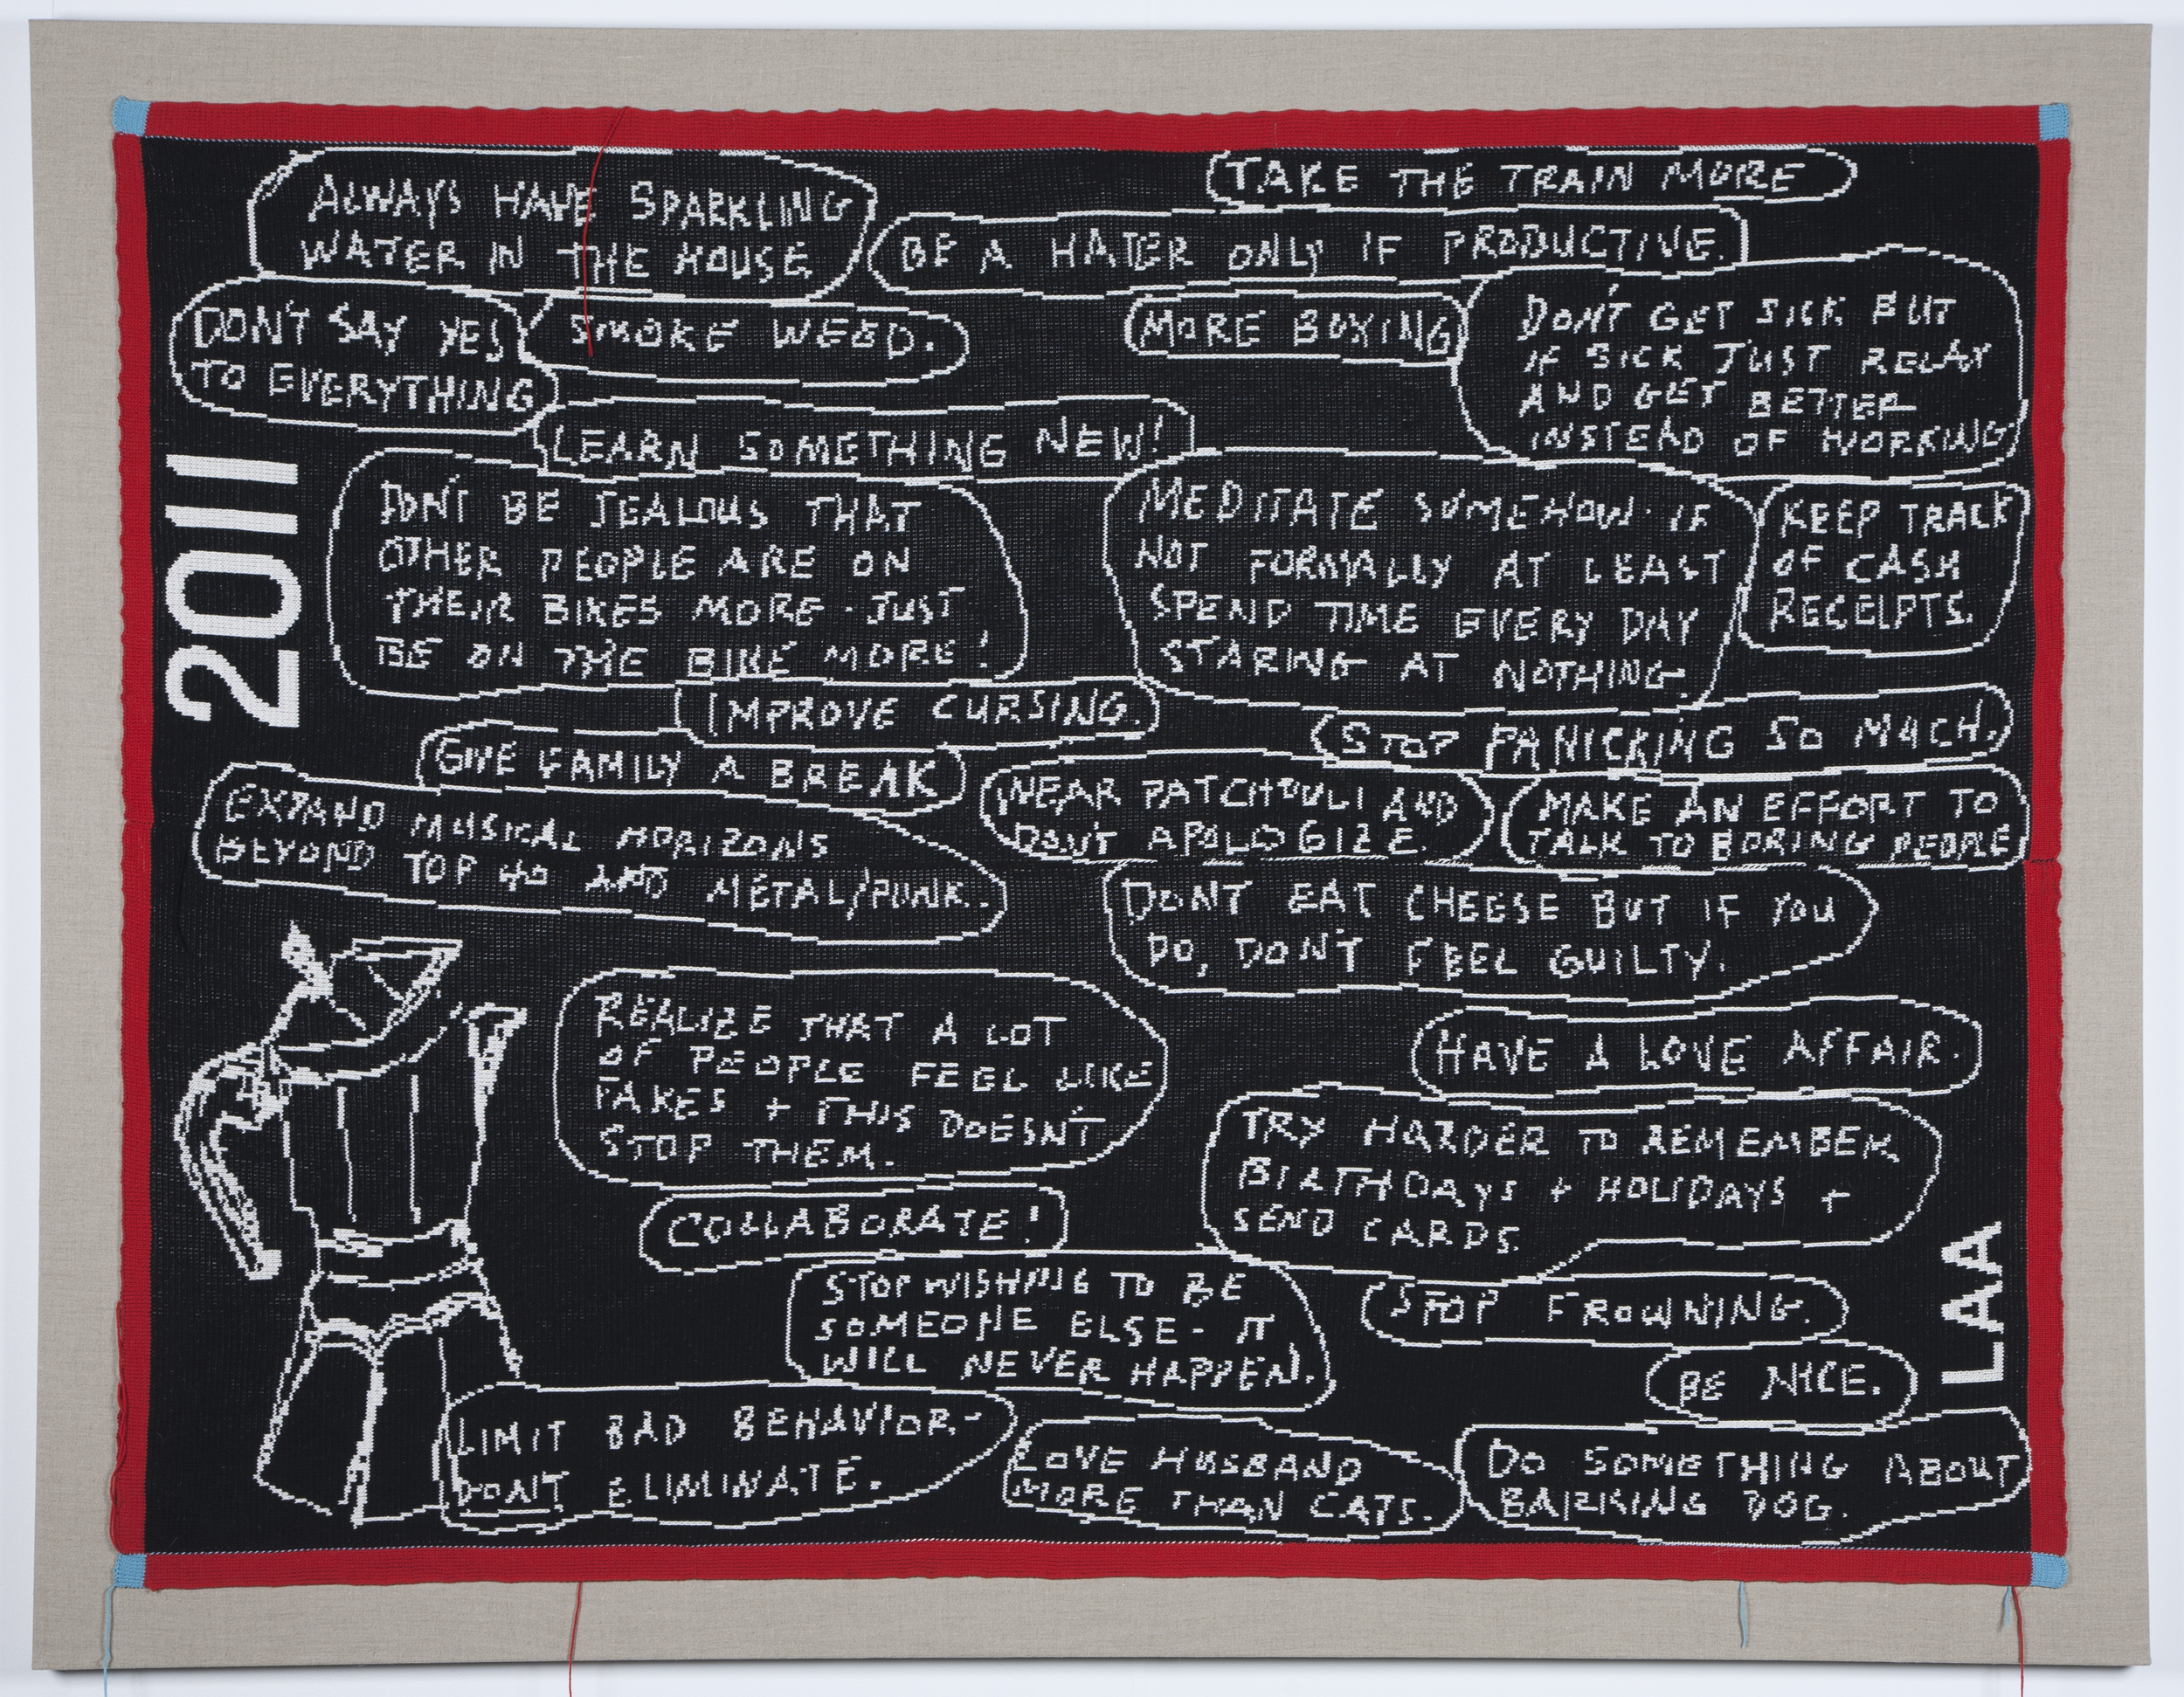 ALWAYS HAVE SPARKLING
WATER IN THE HOUSE
TAKE THE TRAIN MORE
BE A HATER ONLY IF PRODUCTIVE.
DON'T SAY YES
TO EVERYTHING
SMOKE WEED.
MORE BOXING
DON'T GET SICK BUT
IF SICK JUST RELAX
AND GET BETTER
INSTEAD OF WORKING
LEARN SOMETHING NEW!
2011
DON'T BE JEALOUS THAT
OTHER PEOPLE ARE ON
THEIR BIKES MORE. JUST
BE ON THE BIKE MORE!
MEDITATE SOMEHOW. IF
NOT FORMALLY AT LEAST
SPEND TIME EVERY DAY
STARING AT NOTHING.
KEEP TRACK
OF CASH
RECEIPTS.
IMPROVE CURSING.
STOP PANICKING SO MUCH.
GIVE FAMILY A BREAK
EXPAND MUSICAL HORIZONS
BEYOND TOP 40 AND METAL/PUNK.
WEAR PATCHOULI AND
DON'T APOLOGIZE.
MAKE AN EFFORT TO
TALK TO BORING PEOPLE
DON'T EAT CHEESE BUT IF YOU
DO, DON'T FEEL GUILTY.
REALIZE THAT A LOT
OF PEOPLE FEEL LIKE
FAKES + THIS DOESN'T
STOP THEM.
HAVE A LOVE AFFAIR.
TRY HARDER TO REMEMBER
BIRTHDAYS + HOLIDAYS +
SEND CARDS.
COLLABORATE!
STOP WISHING TO BE
SOMEONE ELSE - IT
WILL NEVER HAPPEN.
STOP FROWNING.
BE NICE.
LAA
LIMIT BAD BEHAVIOR-
DON'T ELIMINATE.
LOVE HUSBAND
MORE THAN CATS.
DO SOMETHING ABOUT
BARKING DOG.